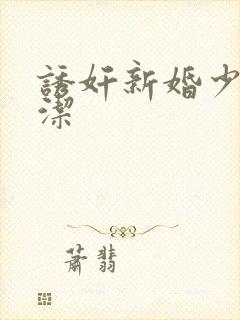 誘奸新婚少
潔
蕭翡